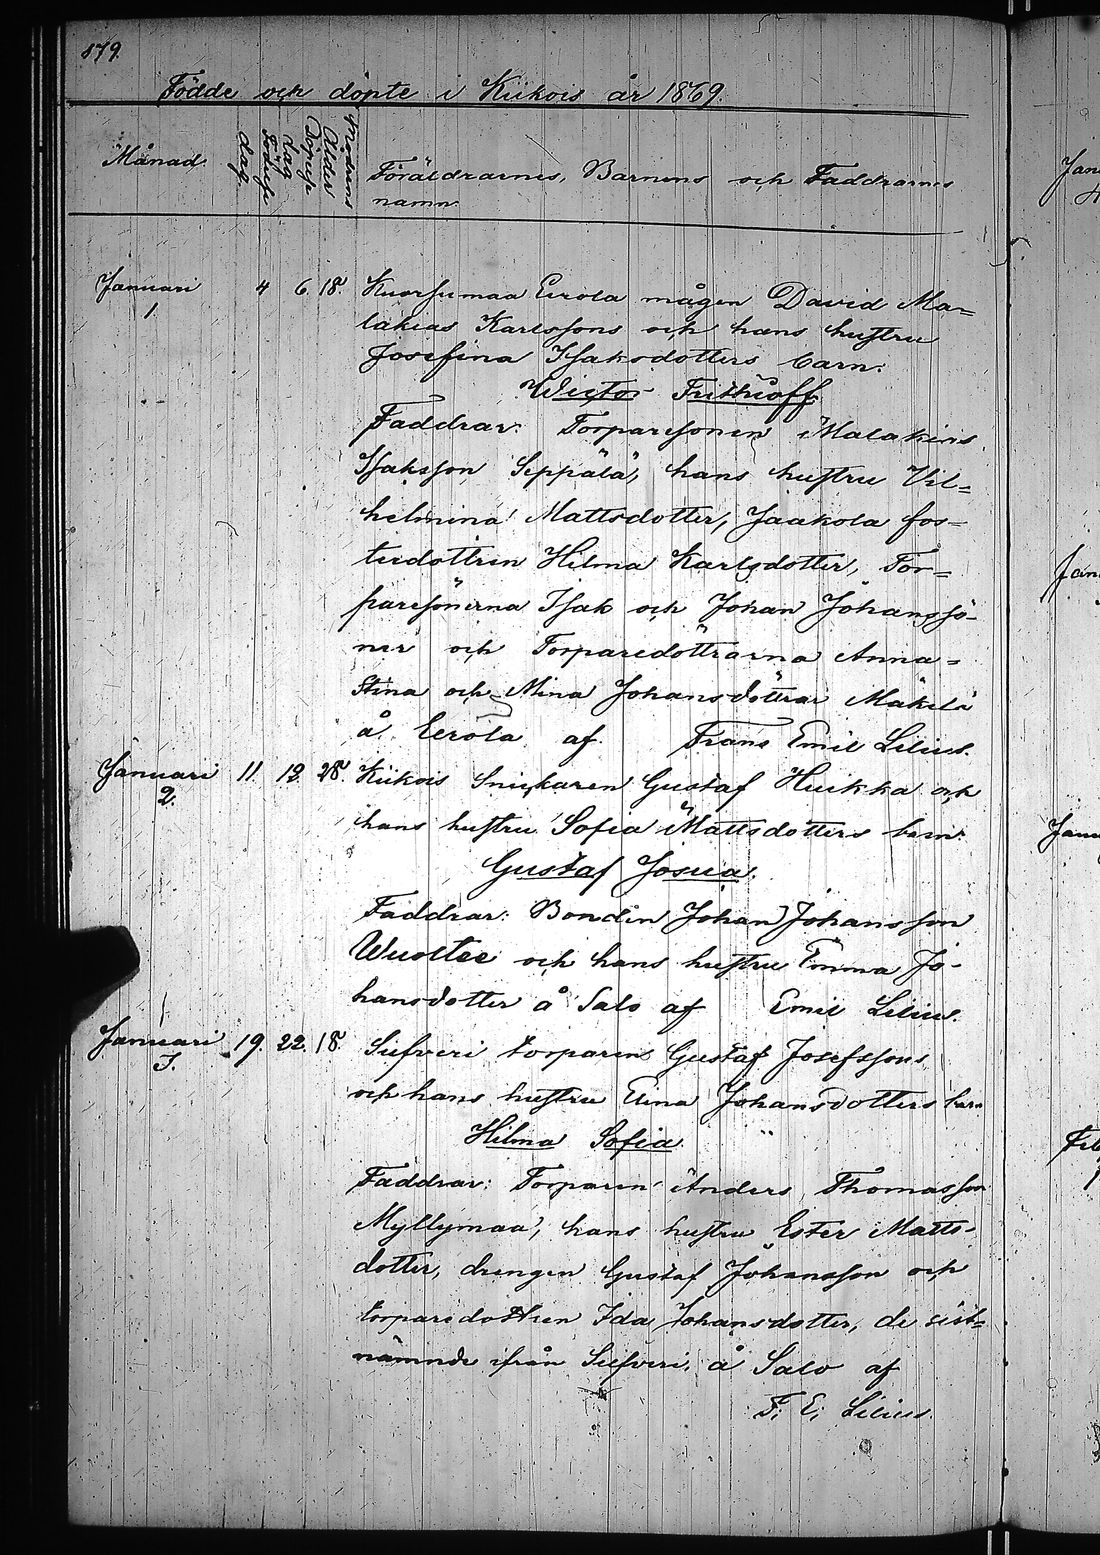 879.
Födde och döpte i Kiikois år 1869.
Månad.
Födelse dag
Döpelse dag
Modrens Ålder
Föräldrarnes, Barnens och Faddrarnes
namn.
Januari 4 6. 18. Kuorsumaa Eerola mågen David Ma=
1. lakias Karlssons och hans hustru
Josefina Isaksdotters barn:
Wictor Frithioff.
Faddrar: Torparesonen Malakias
Isaksson Seppälä, hans hustru Vil=
helmina Mattsdotter, Jaakola fos=
terdottren Hilma Karlsdotter, Tor=
paresönerna Isak och Johan Johanssö-
ner och Torparedöttrarna Anna=
Stina och Mina Johansdöttrar Mäkelä
å Eerola af Frans Emil Lilius.
Januari 11. 13. 28. Kiikois Snickaren Gustaf Huikka och
2. hans hustru Sofia Mattsdotters barn:
Gustaf Josua.
Faddrar: Bonden Johan Johansson
och hans hustru Emma Jo-
hansdotter å Salo af Emil Lilius.
Januari 19. 22. 18. Siefveri torparens Gustaf Josefssons
3. och hans hustru Elina Johansdotters barn
Hilma Sofia
Faddrar: Torparen Anders Thomasson
Myllymaa, hans hustru Ester Matts-
dotter, drengen Gustaf Johansson och
torparedottren Ida Johansdotter, de sist=
nämnde ifrån Siefveri, å Salo af
F. E. Lilius.
Jan